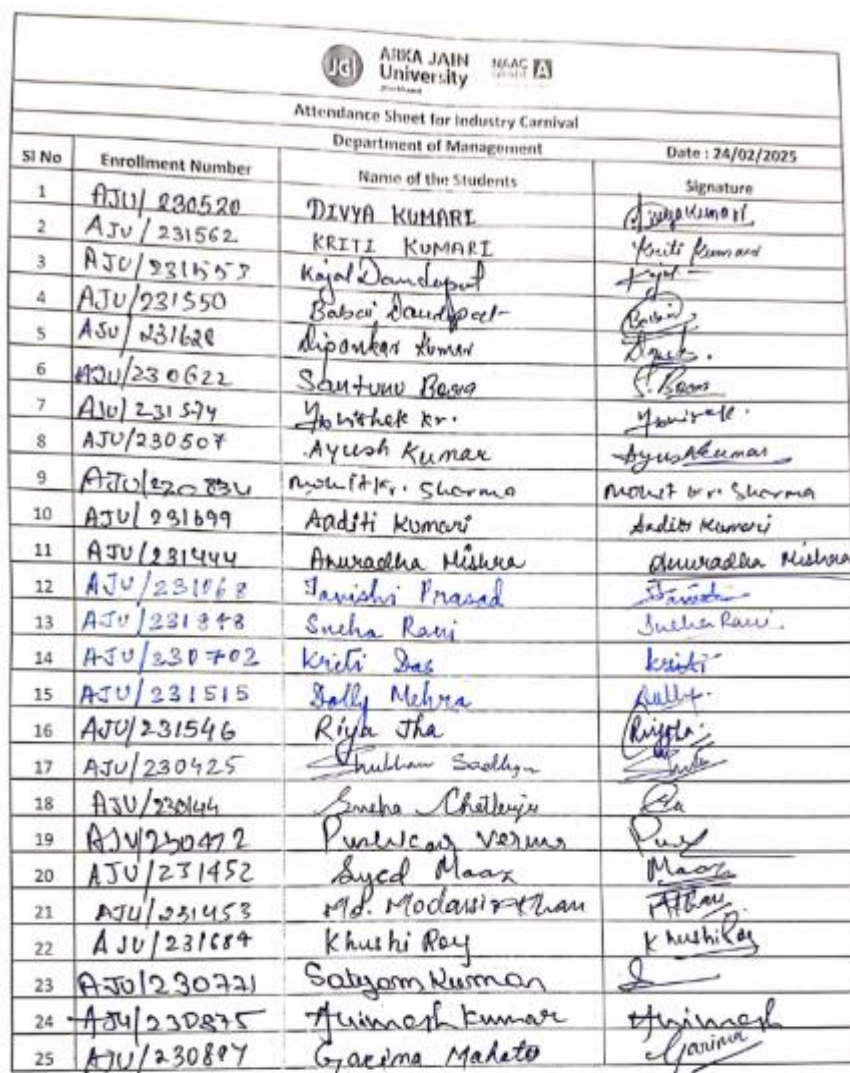 JGI ARKA JAIN University Jharkhand NAAC GRADE A
Attendance Sheet for Industry Carnival
Department of Management Date : 24/02/2025
Sl No Enrollment Number Name of the Students Signature
1 AJU/230520 DIVYA KUMARI Divya Kumari
2 AJU/231562 KRITI KUMARI Kriti Kumari
3 AJU/231553 Kajal Dandapat Kajal
4 AJU/231550 Babai Dandapat
5 AJU/231628 Dipankar Kumar
6 AJU/230622 Santunu Bera S. Bera
7 AJU/231574 Kr.
8 AJU/230507 Ayush Kumar Ayush Kumar
9 AJU/220834 Mohit Kr. Sharma Mohit Kr. Sharma
10 AJU/231699 Aaditi Kumari Aaditi Kumari
11 AJU/231444 Anuradha Mishra Anuradha Mishra
12 AJU/231068 Tanishi Prasad
13 AJU/231848 Sneha Rani Sneha Rani.
14 AJU/230702 Kriti Das Kriti
15 AJU/231515 Dolly Mehra Dolly
16 AJU/231546 Riya Jha
17 AJU/230425 Shubham
18 AJU/230144 Sneha Chatterjee
19 AJU/230472 Pushkar Verma
20 AJU/231452 Syed Maaz Maaz
21 AJU/231453 Md. Modassir Khan
22 AJU/231684 Khushi Roy Khushi Roy
23 AJU/230771 Satyam Kumar
24 AJU/230875 Animesh Kumar Animesh
25 AJU/230897 Garima Mahato Garima